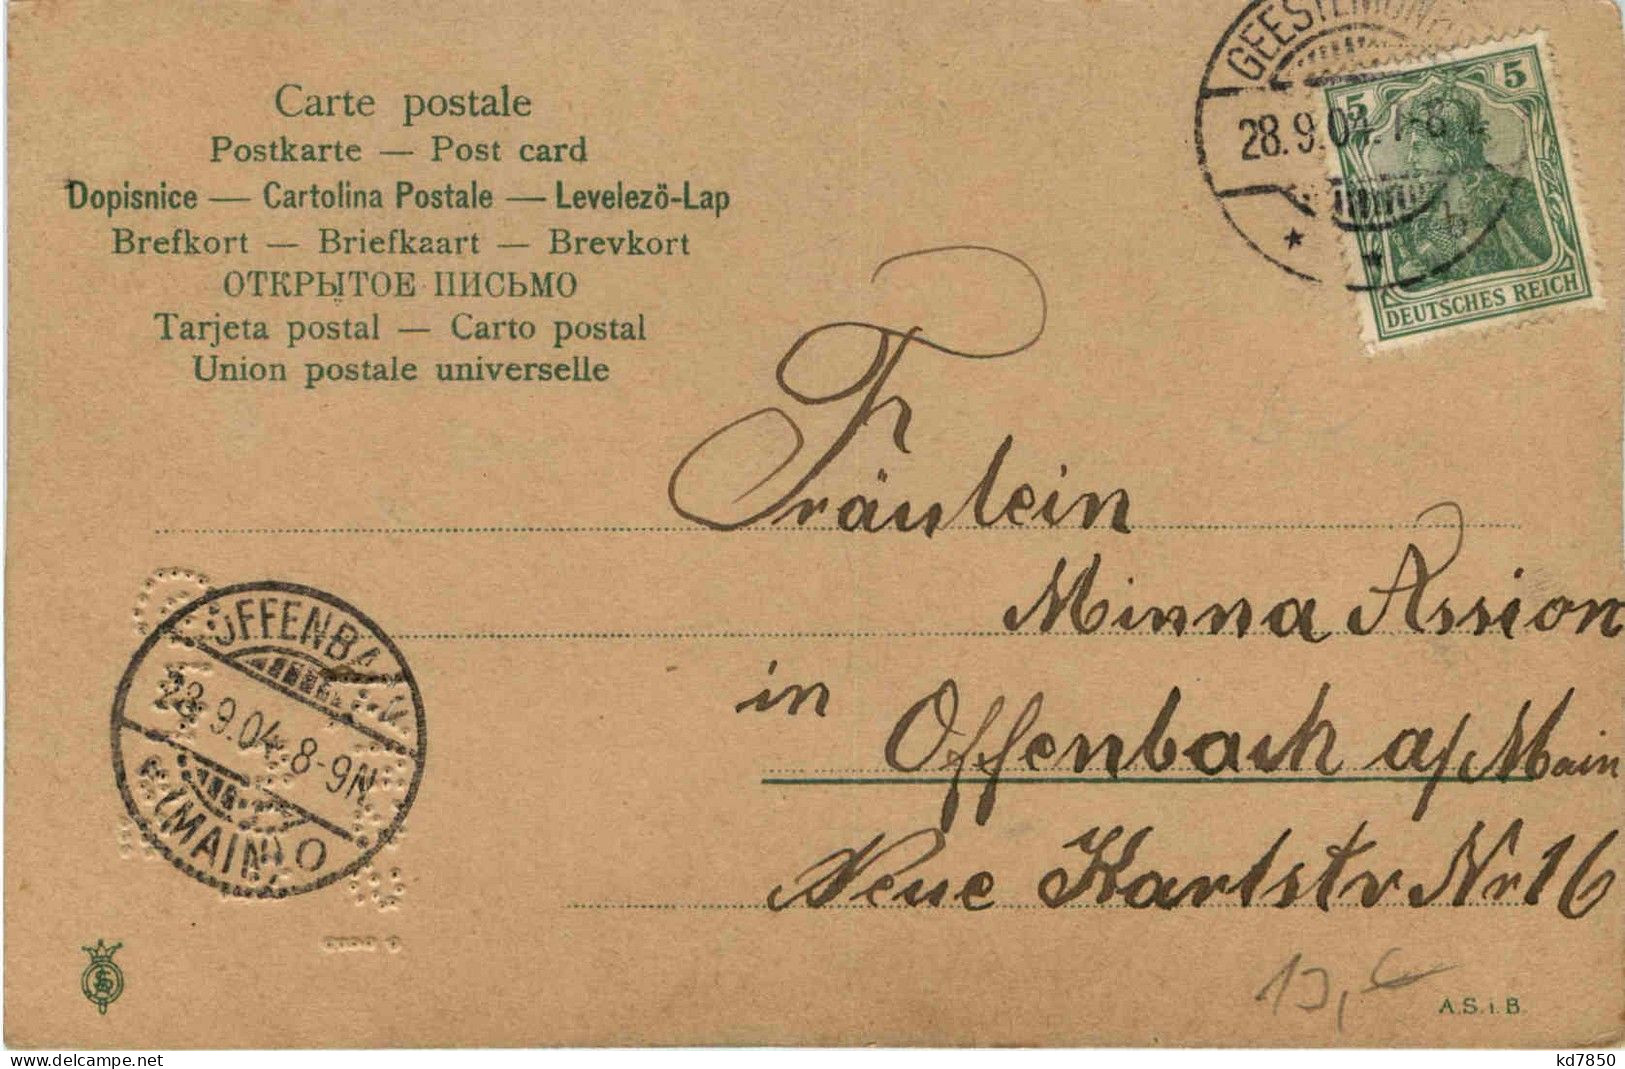 Carte postale
Postkarte — Post card
Dopisnice — Cartolina Postale — Levelezö-Lap
Brefkort — Briefkaart — Brevkort
ОТКРЫТОЕ ПИСЬМО
Tarjeta postal — Carto postal
Union postale universelle
28.9.04.
5 5
DEUTSCHES REICH
Fräulein
Minna Assion
in Offenbach a/Main
Neue Karlstr Nr 16
OFFENBA
28.9.04. 8-9N.
(MAIN) O
13,-
A.S.i.B.
kd7850